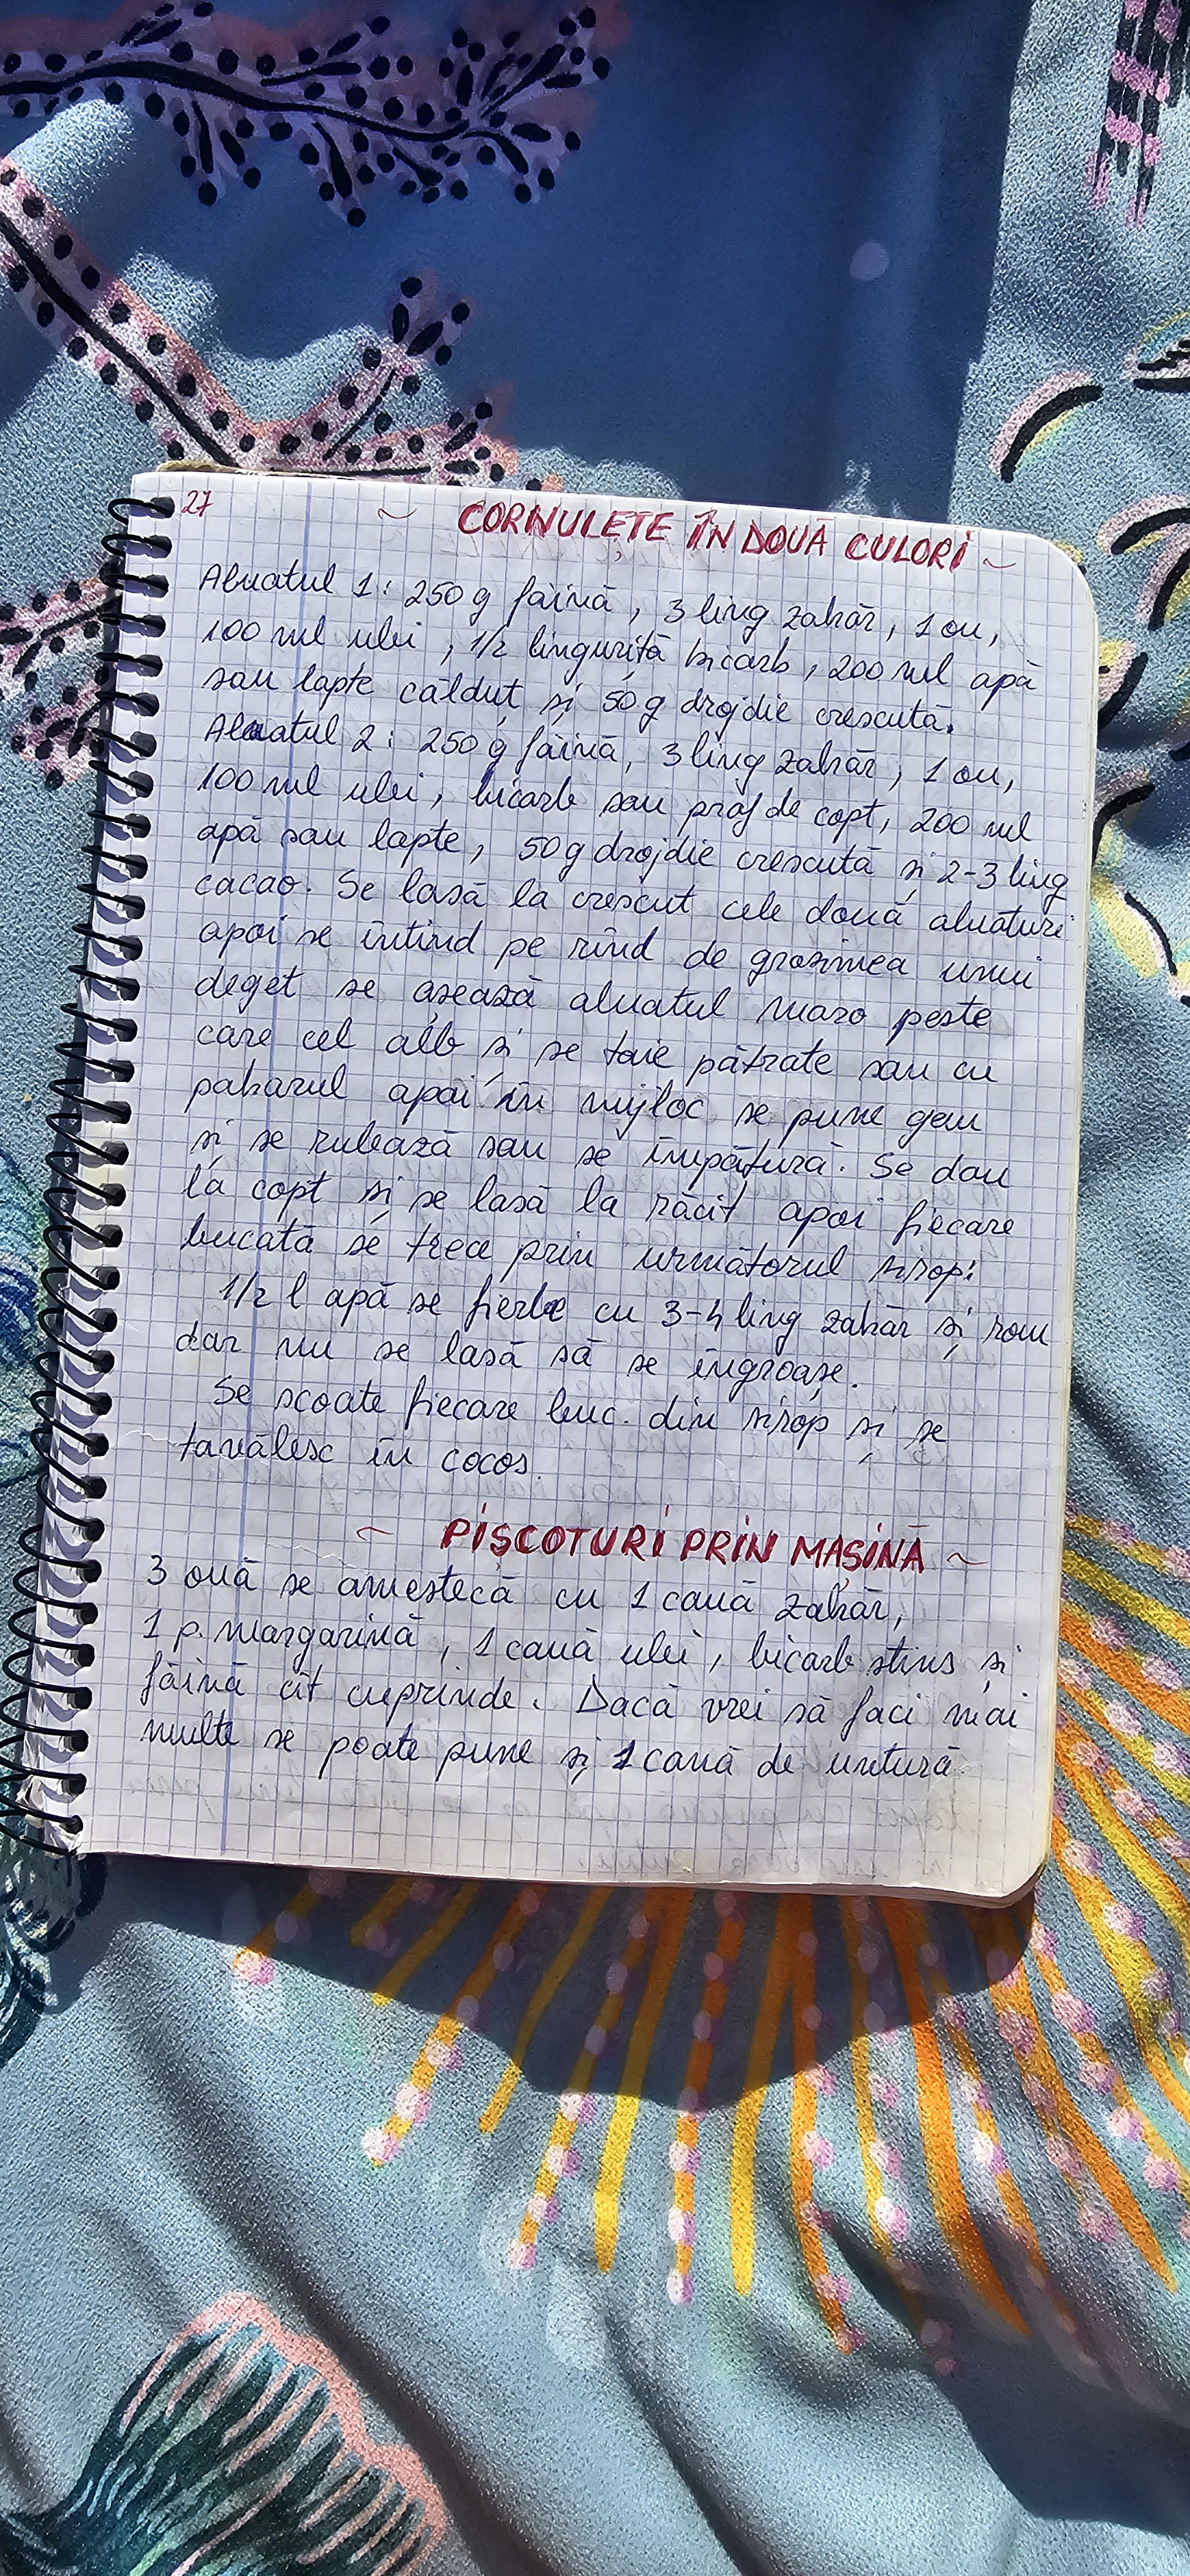 27
~ CORNULEȚE ÎN DOUA CULORI ~
Aluatul 1: 250 g făină, 3 ling zahăr, 1 ou,
100 ml ulei, 1/2 linguriță bicarb, 200 ml apă
sau lapte călduț și 50 g drojdie crescută.
Aluatul 2: 250 g făină, 3 ling zahăr, 1 ou,
100 ml ulei, bicarb sau praf de copt, 200 ml
apă sau lapte, 50 g drojdie crescută și 2-3 ling
cacao. Se lasă la crescut cele două aluaturi
apoi se întind pe rînd de grosimea unui
deget se așează aluatul maro peste
care cel alb și se taie pătrate sau cu
paharul apoi în mijloc se pune gem
și se rulează sau se împătură. Se dau
la copt și se lasă la răcit apoi fiecare
bucată se trece prin următorul sirop:
1/2 l apă se fierbe cu 3-4 ling zahăr și rom
dar nu se lasă să se îngroașe.
Se scoate fiecare buc. din sirop și se
tavălesc în cocos.
~ PIȘCOTURI PRIN MAȘINĂ ~
3 ouă se amestecă cu 1 cană zahăr,
1 p. margarină, 1 cană ulei, bicarb stins și
făină cît cuprinde. Dacă vrei să faci mai
multe se poate pune și 1 cană de untură.